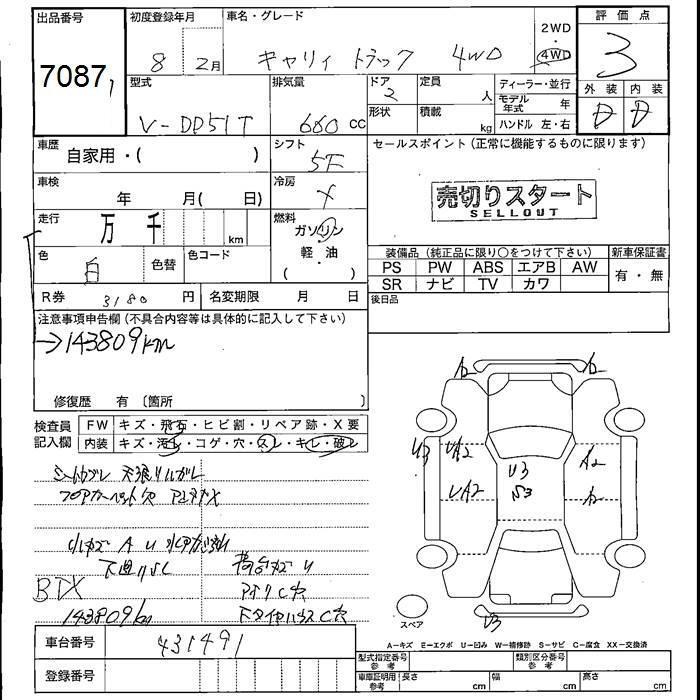 出品番号 初度登録年月 車名・グレード 2WD・4WD 評価点
7087 8 2月 キャリィ トラック 4WD 3
型式 排気量 ドア 定員 ディーラー・並行 外装 内装
2 人 モデル年式 年 D D
V-DD51T 660 cc 形状 積載 kg ハンドル 左・右
車歴 シフト セールスポイント(正常に機能するものに限ります)
自家用・( ) 5F
車検 冷房
年 月( 日) × 売切りスタート
SELLOUT
走行 燃料
万 千 km ガソリン
色 色替 色コード 軽・油 装備品(純正品に限り○をつけて下さい) 新車保証書
白 ( ) PS PW ABS エアB AW 有・無
SR ナビ TV カワ
R券 3180 円 名変期限 月 日 後日品
注意事項申告欄(不具合内容等は具体的に記入して下さい)
→143809km
修復歴 有 〔箇所 〕
検査員 FW キズ・飛石・ヒビ割・リペア跡・X要
記入欄 内装 キズ・汚レ・コゲ・穴・スレ・キレ・破レ
A2 A2
U3 UA2 U3 A2
UA2 S3
フロアカーペット穴
小キズ A U
下廻りSC 荷台キズ U
143809km
スペア U3
A-キズ E-エクボ U-凹み W-補修跡 S-サビ C-腐食 XX-交換済
車台番号 431491 型式指定番号 参考 類別区分番号 参考
登録番号 車庫証明用 参考 長さ cm 幅 cm 高さ cm